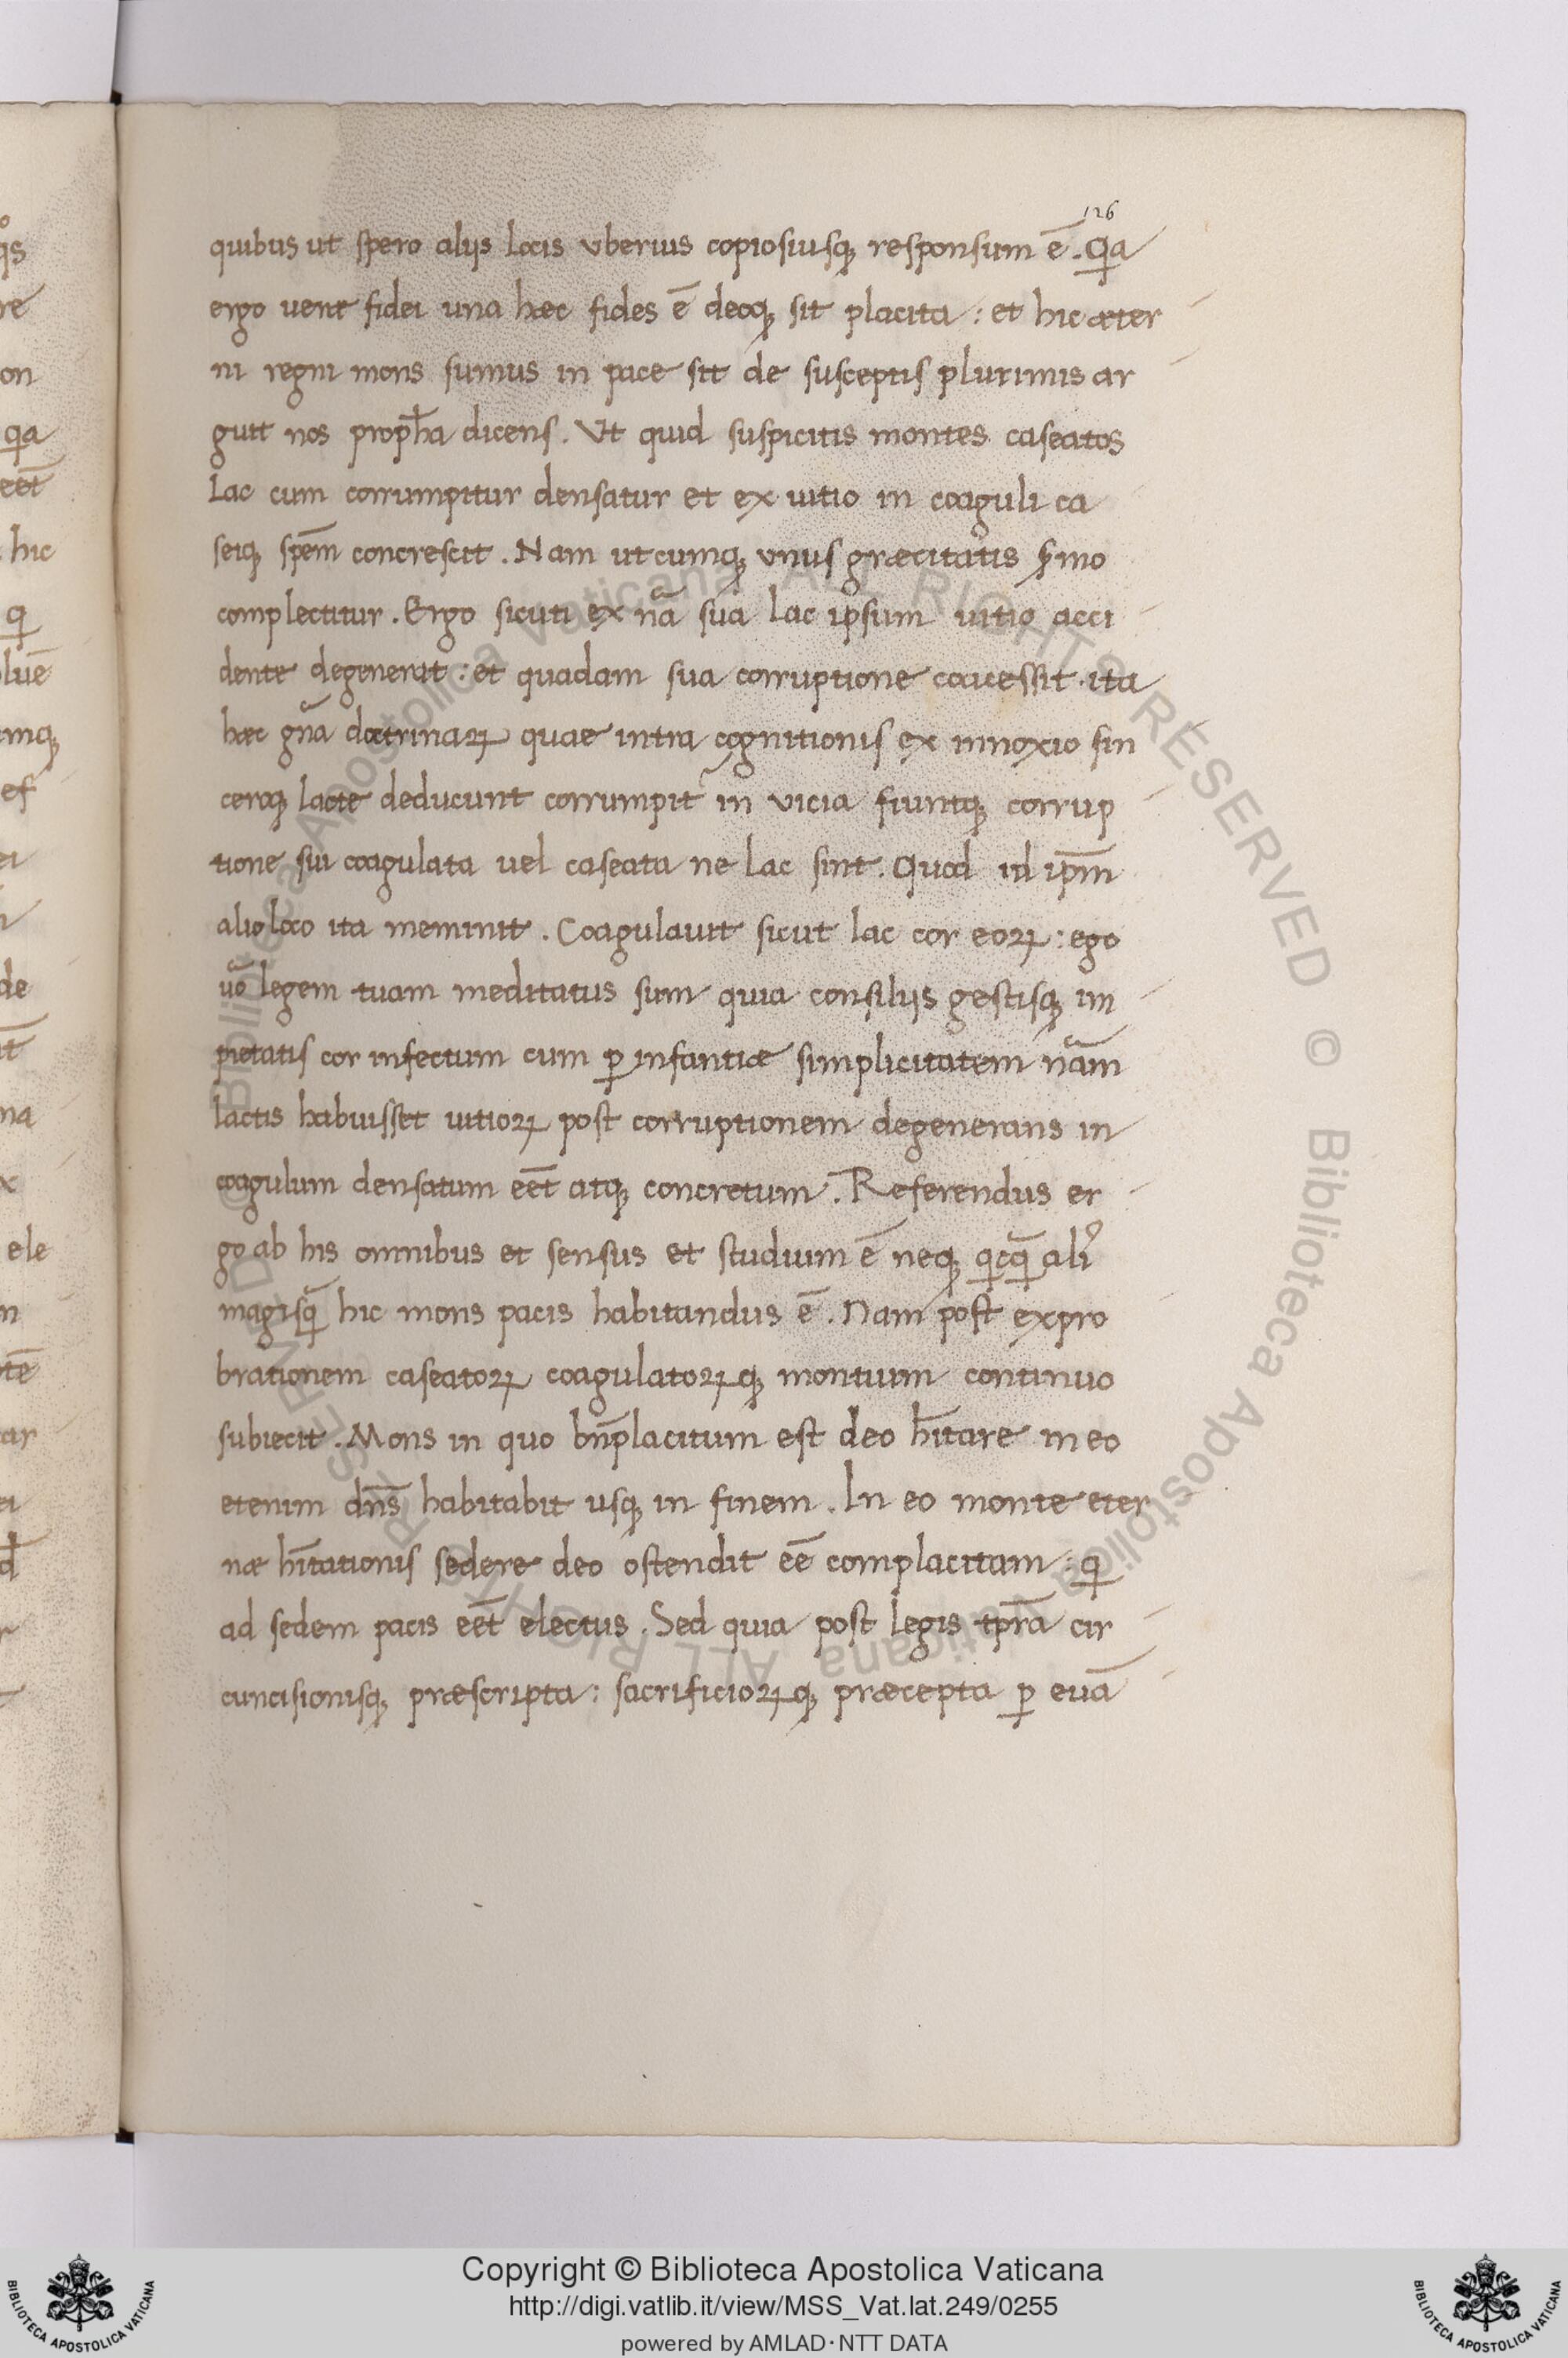 126
quibus ut spero alijs locis vberius copiosiusq; responsum ē. Qꝛa
ergo uere fidei una hæc fides ē deoq; sit placita : et hic æter
ni regni mons sumus in pace sit de susceptis plurimis ar
guit nos proph̄a dicens. Ut quid suspicitis montes caseatos
Lac cum corrumpitur densatur et ex uitio in coaguli ca
seiq; spēm concrescit. Nam utcumq; vnus græcitatis ẜmo
complectitur. Ergo sicuti ex nã sua lac ipsum uitio acci
dente degenerat : et quadam sua corruptione coacessit. ita
hæc gña doctrinaꝝ quae intra cognitionis ex innoxio sin
ceroq; lacte deducunt corrumpit̃ in vicia fiuntq; corrup
tione sui coagulata uel caseata ne lac sint. Quod id ip̄m
alio loco ita meminit. Coagulauit sicut lac cor eoꝝ : ego
uõ legem tuam meditatus sum quia consilijs gestisq; im
pietatis cor infectum cum ꝑ infantiæ simplicitatem nãm
lactis habuisset uitioꝝ post corruptionem degenerans in
coagulum densatum eēt atq; concretum. Referendus er
go ab his omnibus et sensus et studium ē neq; qicq̃ ali᷒
magisq̃ hic mons pacis habitandus ē. Nam post expro
brationem caseatoꝝ coagulatoꝝq; montium continuo
subiecit. Mons in quo bn̄placitum est deo h̄itare in eo
etenim dn̄s habitabit usq; in finem. In eo monte eter
næ h̄itationis sedere deo ostendit eē complacitam : q
ad sedem pacis eēt electus. Sed quia post legis tp̄ra cir
cuncisionisq; præscripta : sacrificioꝝq; præcepta ꝑ euã
Copyright © Biblioteca Apostolica Vaticana
http://digi.vatlib.it/view/MSS_Vat.lat.249/0255
powered by AMLAD·NTT DATA